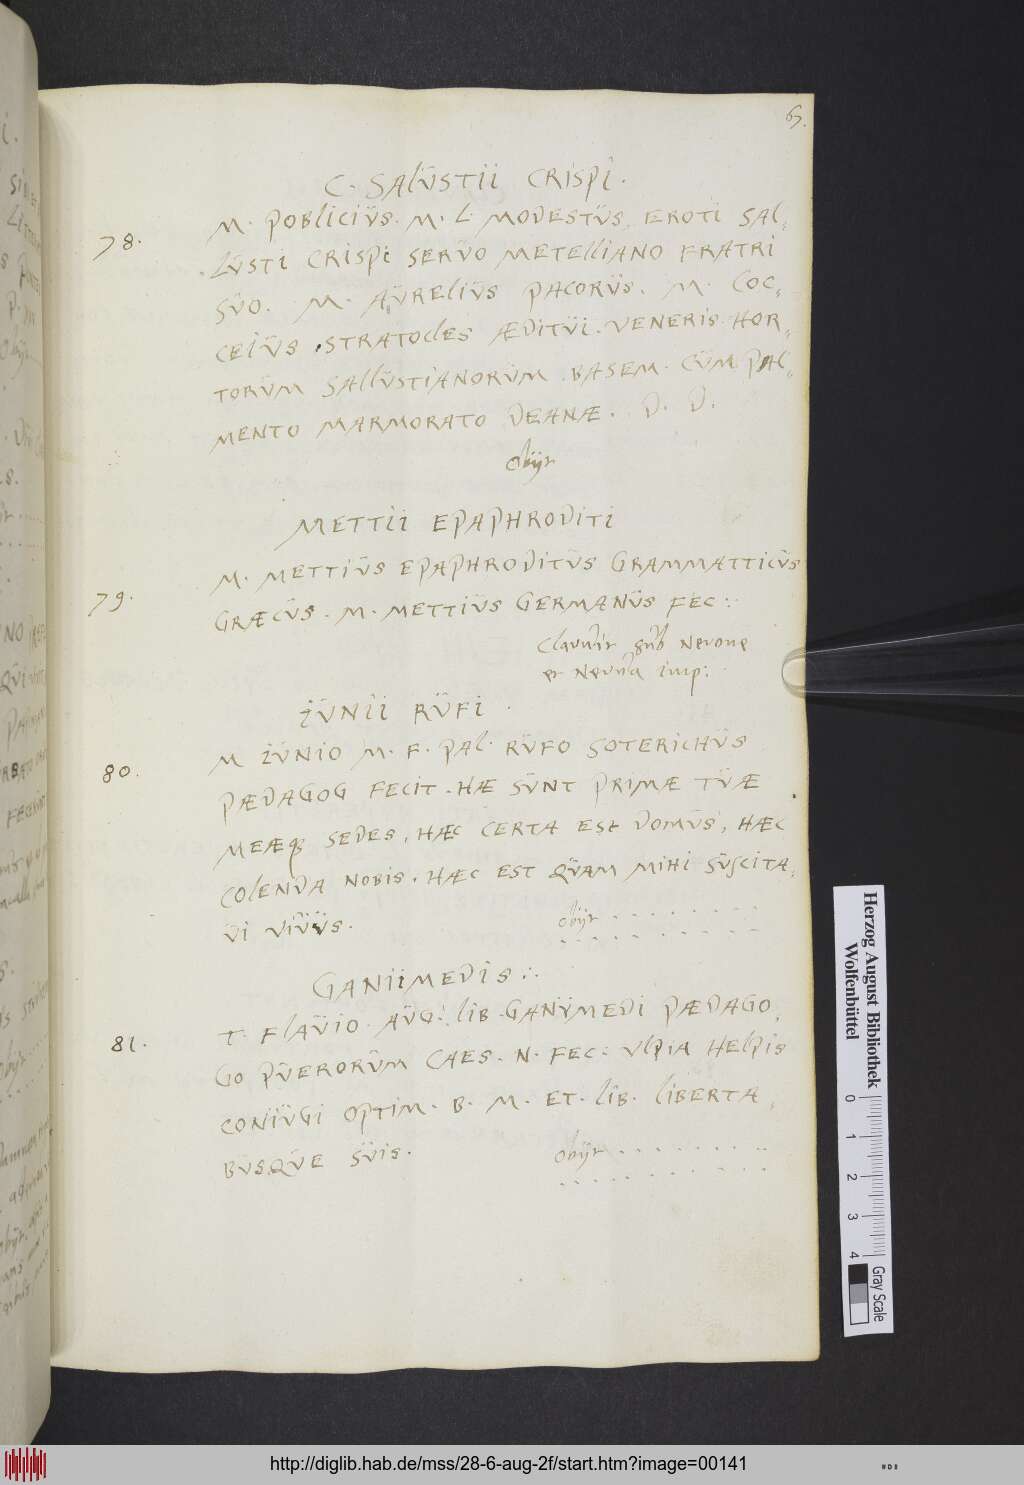 67.
C. SALŪSTII CRISPI.
78.
M. POBLICIUS. M. L. MODESTUS EROTI SAL-
LUSTI CRISPI SERVO METELLIANO FRATRI
SUO. M. AURELIUS PACORUS. M. COC-
CEIUS STRATOCLES ÆDITUI. VENERIS. HOR-
TORUM SALLUSTIANORUM BASEM. CUM PAL-
MENTO MARMORATO DEANÆ. D. D.
obijt
METTII EPAPHRODITI
79.
M. METTIUS EPAPHRODITUS GRAMMATTICUS
GRÆCUS. M. METTIUS GERMANUS FEC:
Claruit sub Nerone
et Nerua imp:
IUNII RUFI.
80.
M IUNIO M. F. PAL. RUFO SOTERICHUS
PÆDAGOG FECIT. HÆ SUNT PRIMÆ TUÆ
MEÆQ SEDES, HÆC CERTA EST DOMUS, HÆC
COLENDA NOBIS. HÆC EST QUAM MIHI SUSCITA-
VI VIVUS.
obijt . . . . . . . .
GANIIMEDIS:.
81.
T. FLAVIO. AUG. LIB. GANYMEDI PÆDAGO-
GO PUERORUM CAES. N. FEC. ULPIA HELPIS
CONIUGI OPTIM. B. M. ET. LIB. LIBERTA-
BUSQUE SUIS.
obijt . . . . . . . .
Herzog August Bibliothek
Wolfenbüttel
0 1 2 3 4
Gray Scale
http://diglib.hab.de/mss/28-6-aug-2f/start.htm?image=00141